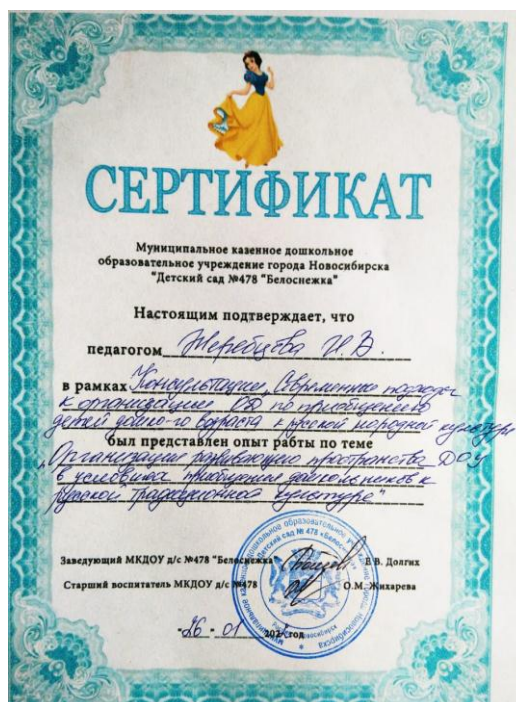 СЕРТИФИКАТ
Муниципальное казенное дошкольное
образовательное учреждение города Новосибирска
"Детский сад №478 "Белоснежка"
Настоящим подтверждает, что
педагогом Жеребцова И.В.
в рамках Консультации „Современные подходы
к организации ОД по приобщению
детей дошк-го возраста к русской народной культуре
был представлен опыт рабты по теме
„Организация развивающего пространства ДОУ
в условиях приобщения дошкольников к
русской традиционной культуре"
Заведующий МКДОУ д/с №478 "Белоснежка" Е.В. Долгих
Старший воспитатель МКДОУ д/с №478 О.М. Жихарева
«26» 01 год